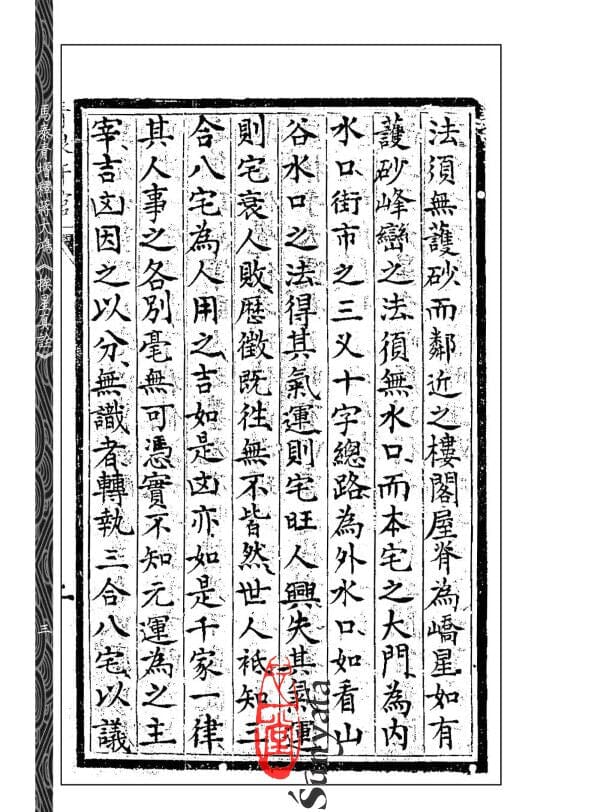 法須無護砂而鄰近之樓閣屋脊為嶠星如有
護砂峰巒之法須無水口而本宅之大門為內
水口街市之三义十字總路為外水口如看山
谷水口之法得其氣運則宅旺人興失其氣運
則宅衰人敗歷徵既徃無不皆然世人袛知三
合八宅為人用之吉如是凶亦如是千家一律
其人事之各別毫無可憑實不知元運為之主
宰吉凶因之以分無識者轉執三合八宅以議
馬泰青增釋蔣大鴻《挨星真詮》
三
Śūnyatā